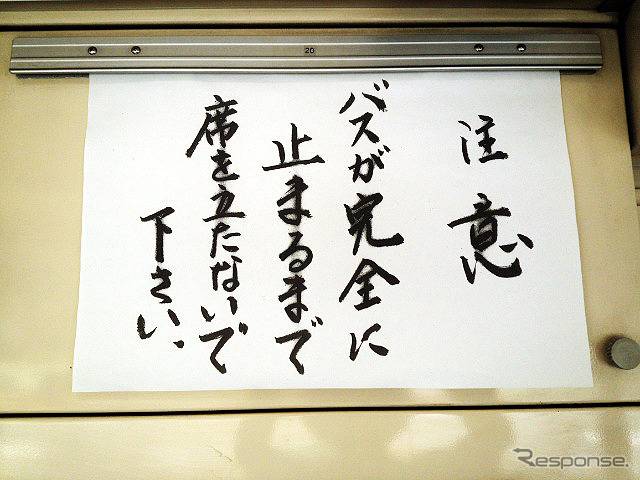 注意
バスが完全に
止まるまで
席を立たないで
下さい、
20
Response.